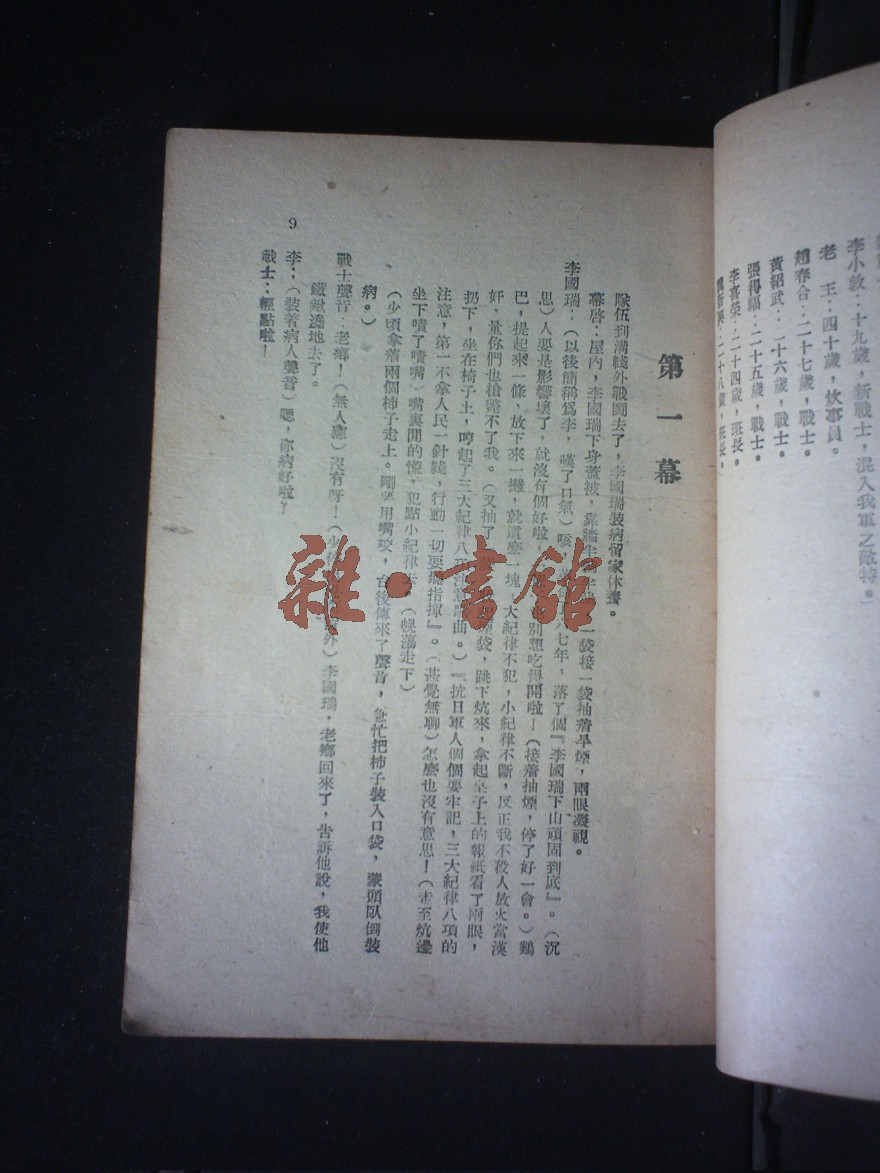 李小敦：十九歲，新戰士，混入我軍之敵特。
老　王：四十歲，炊事員。
趙春合：二十七歲，戰士。
黃紹武：一十六歲，戰士。
張得福：二十五歲，戰士。
李喜榮：二十四歲，班長。
二十八歲，班長。
第一幕
隊伍到溝綫外戰鬪去了，李國瑞裝病留家休養。
幕啓：屋內，李國瑞下身蓋被，靠牆半 一袋接一袋抽着旱煙，兩眼凝視。
李國瑞：（以後簡稱爲李，嘆了口氣）咳， 七年，落了個『李國瑞下山頑固到底』。（沉
思）人要是影響壞了，就沒有個好啦 別想吃得開啦！（接着抽煙，停了好一會。）鷄
巴，提起來一條，放下來一攤，就這麼一塊 大紀律不犯，小紀律不斷，反正我不殺人放火當漢
奸，量你們也槍斃不了我。（又抽了 煙袋，跳下炕來，拿起桌子上的報紙看了兩眼，
扔下，坐在椅子上，哼起了三大紀律八項注意歌曲。）『抗日軍人個個要牢記，三大紀律八項的
注意，第一不拿人民一針綫，行動一切要聽指揮』。（甚覺無聊）怎麼也沒有意思！（走至炕邊
坐下嘖了嘖嘴）嘴裏閒的慌，犯點小紀律去（幌蕩走下）
（少頃拿着兩個柿子走上。剛要用嘴咬，台後傳來了聲音，急忙把柿子裝入口袋，蒙頭臥倒裝
病。）
戰士聲音：老鄉！（無人應）沒有呀！（少 外）李國瑞，老鄉回來了，告訴他說，我使他
鐵鍬澆地去了。
李：（裝着病人聲音）嗯，你病好啦？
戰士：輕點啦！
9
雜·書館